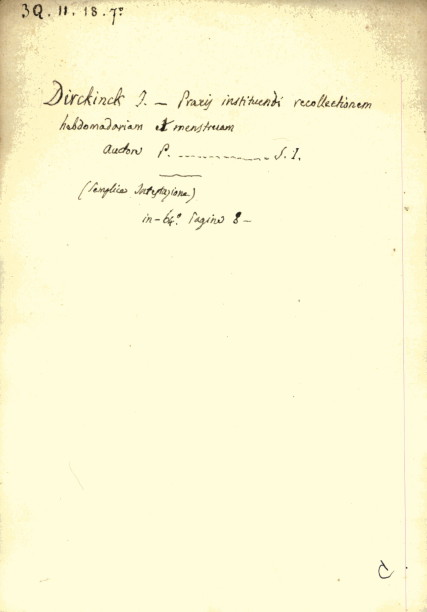 3Q. 11. 18. 7º
Dirckinck J. — Praxis instituendi recollectionem
hebdomadariam et menstruam
auctore P. ............... S. I.
(Semplice Intestazione)
in-64º. Pagine 8 —
C